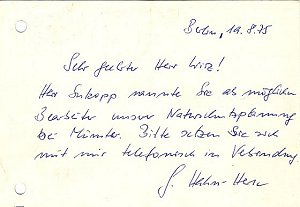 Berlin, 19.8.75
Sehr geehrter Herr Wirz!
Herr Sukopp nannte Sie als möglichen
Bearbeiter unserer Naturschutzplanung
bei Münster. Bitte setzen Sie sich
mit mir telefonisch in Verbindung.
G. Hahn-Herse